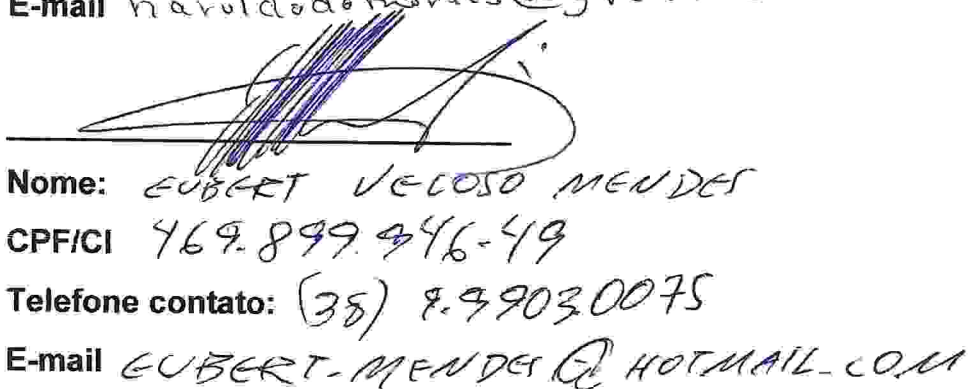 E-mail
Nome: EUBERT VELOSO MENDES
CPF/CI 469.899.946-49
Telefone contato: (38) 9.9903.0075
E-mail EUBERT-MENDES@HOTMAIL.COM